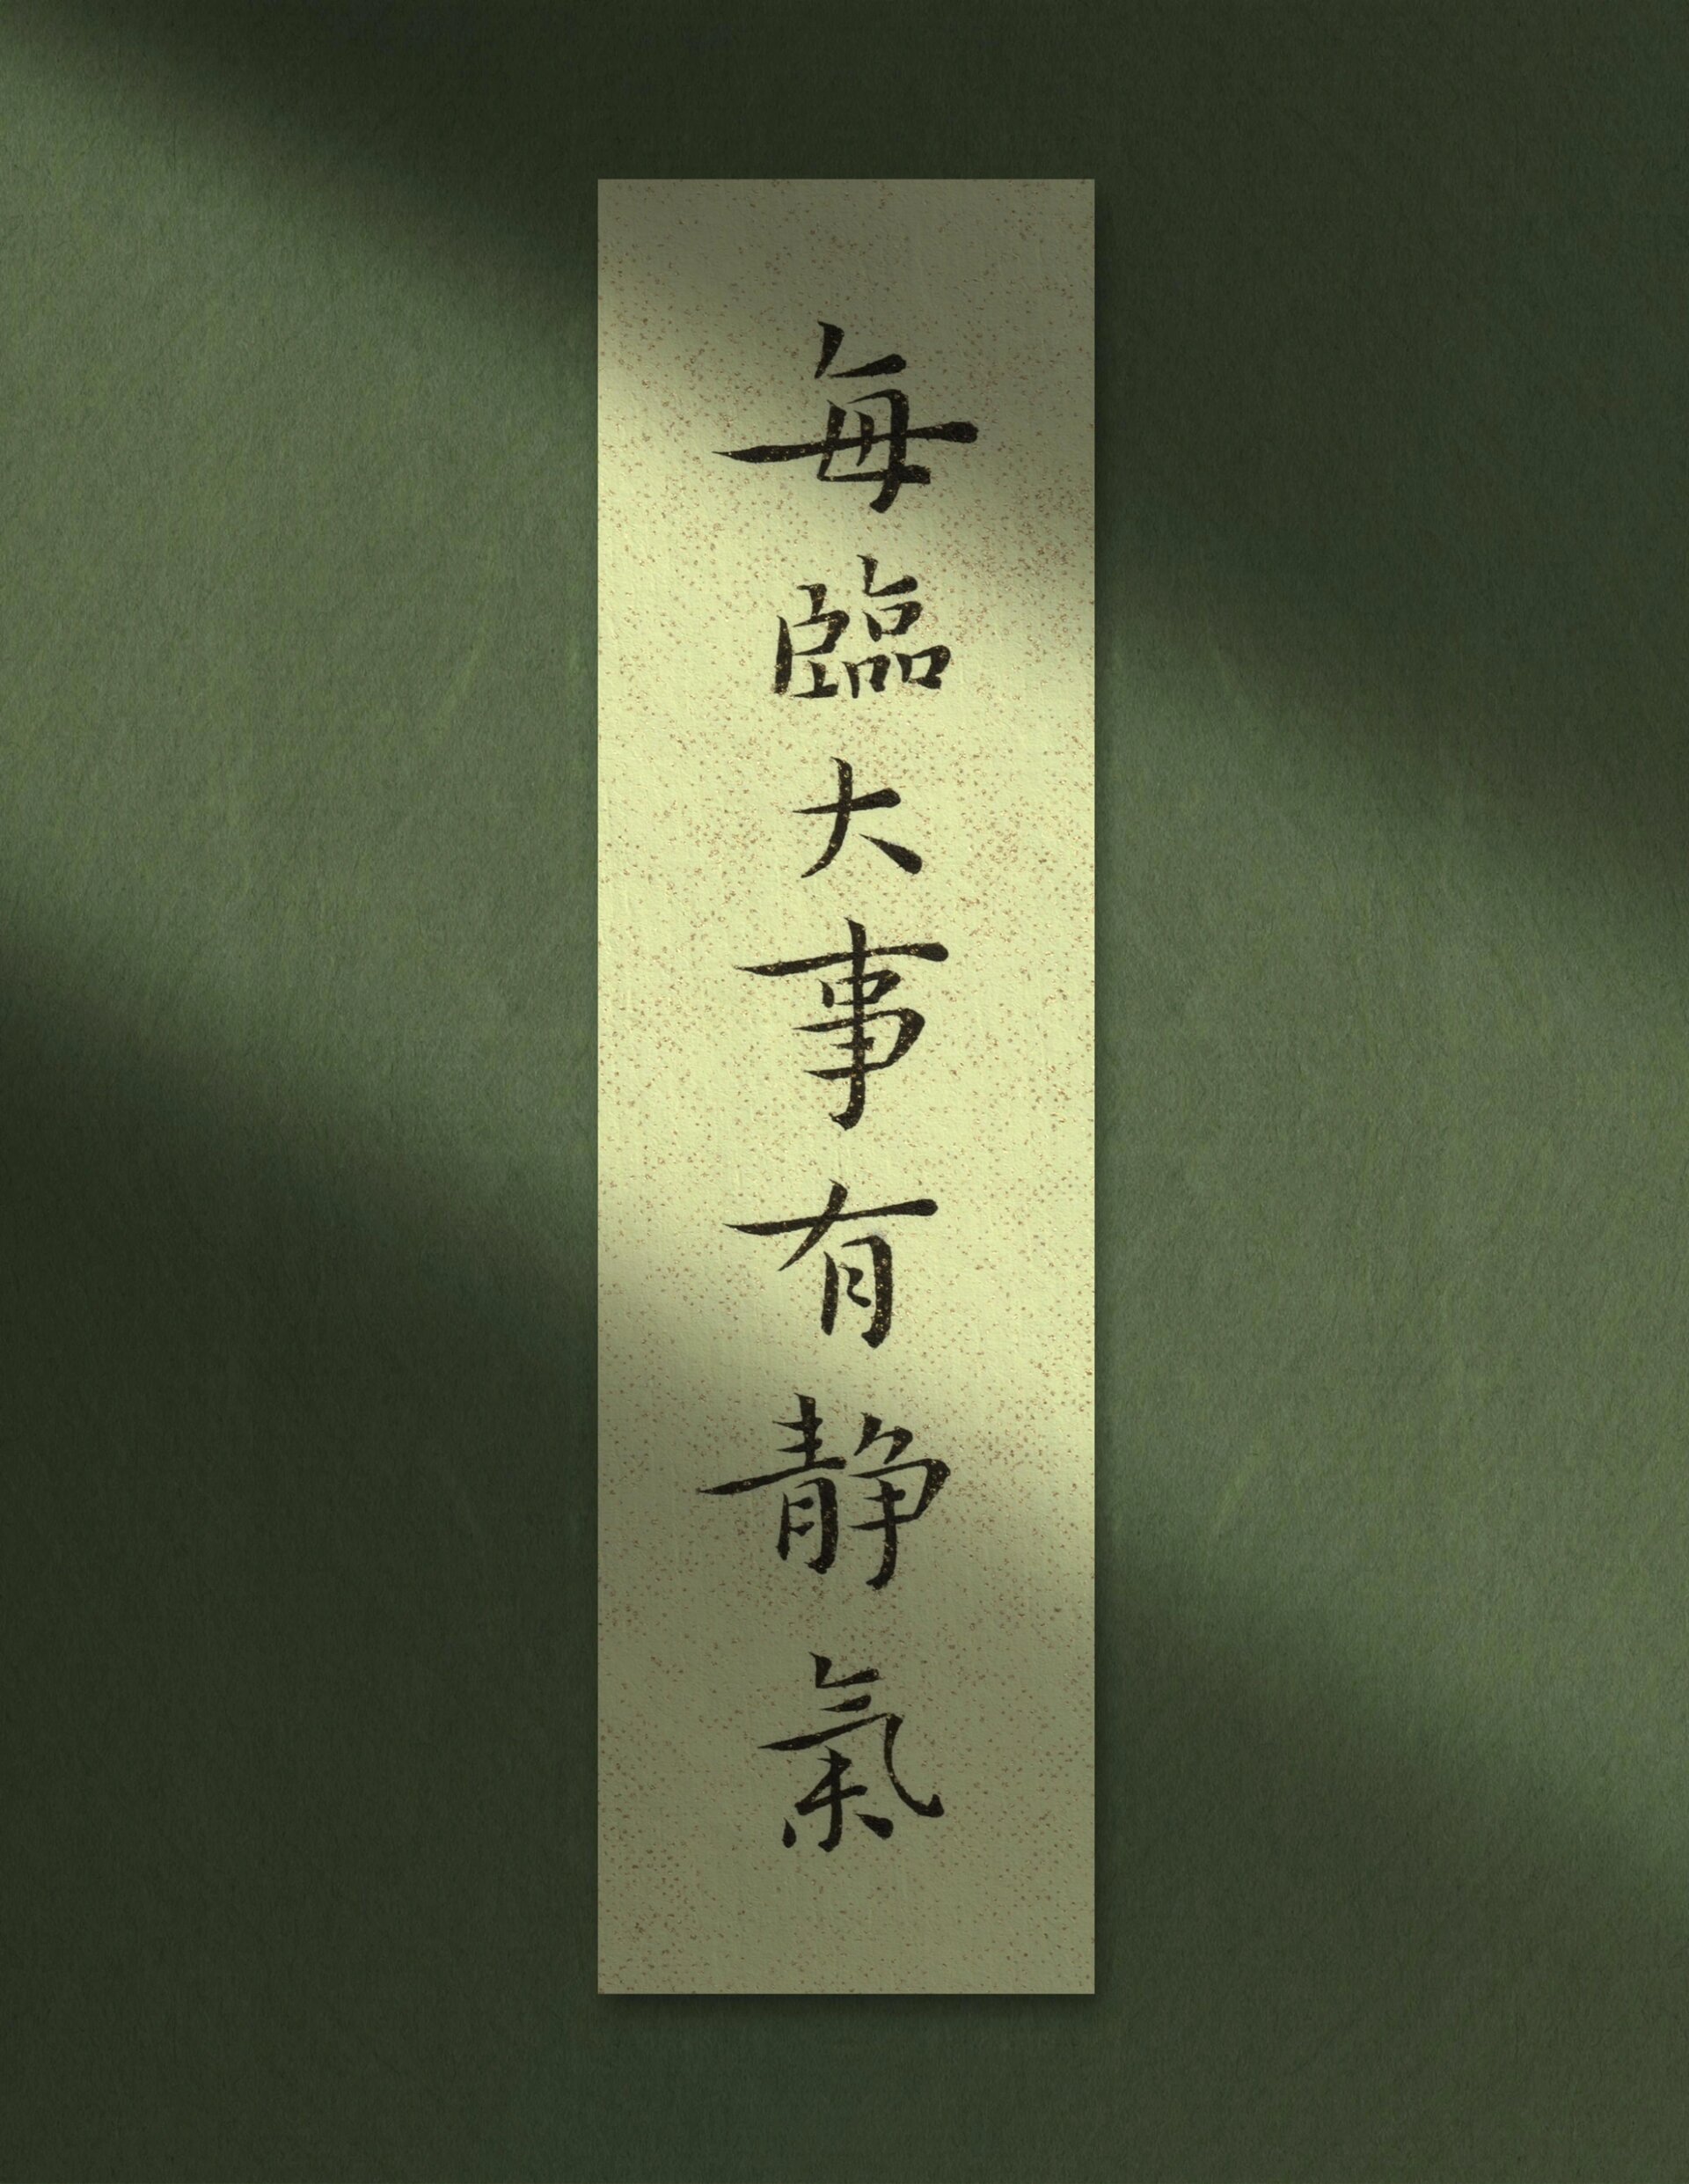 每臨大事有静氣